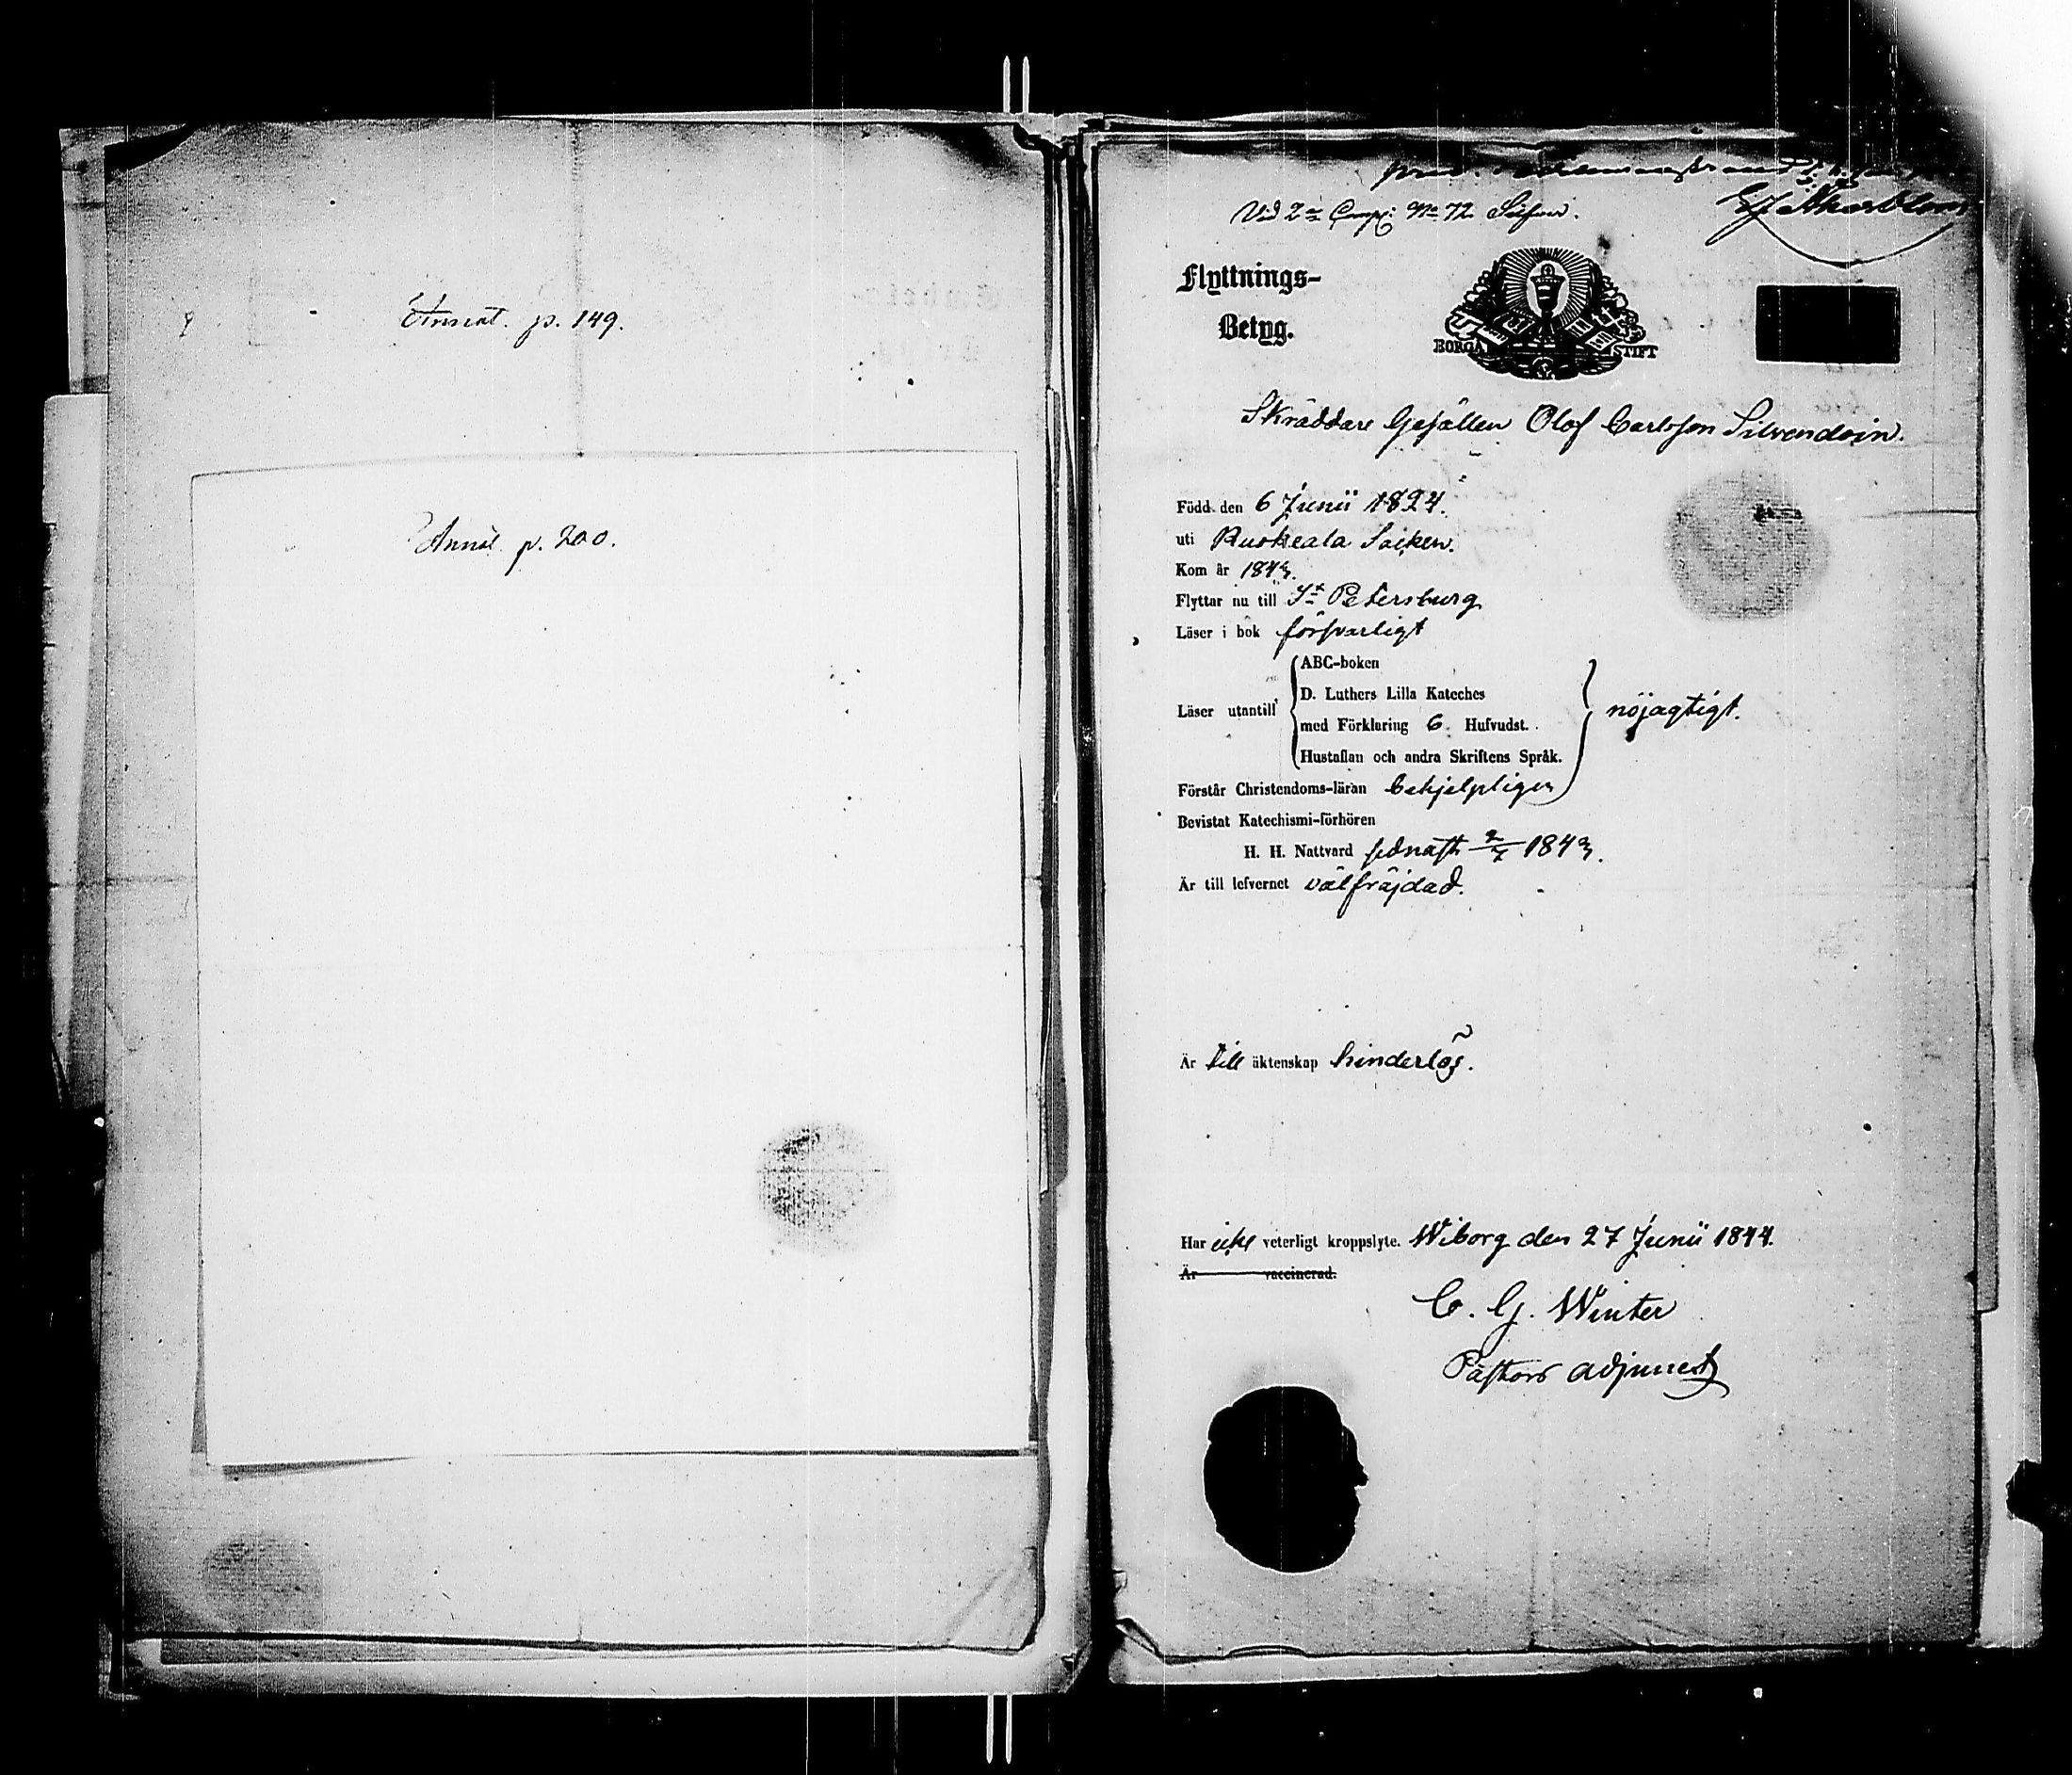 Annot. p. 149.
Annot. p. 200.
Vid 2a Comp: No 72.
Flyttnings-
Betyg.
BORGÅ STIFT
Skräddare Gesällen Olof Carlsson Silvendoin.
Född den 6 Junii 1824.
uti Ruskeala Socken.
Kom år 1843.
Flyttar nu till St Petersburg
Läser i bok försvarligt
Läser utantill
ABC-boken
D. Luthers Lilla Kateches
med Förklaring 6 Hufvudst.
Hustaflan och andra Skriftens Språk.
nöjagtigt.
Förstår Christendoms-läran behjelpligen
Bevistat Katechismi-förhören
H. H. Nattvard sednast 2/7 1843.
Är till lefvernet välfräjdad.
Är till äktenskap hinderlös.
Har icke veterligt kroppslyte. Wiborg den 27 Junii 1844.
Är vaccinerad.
C. G. Winter
Pastors adjunct